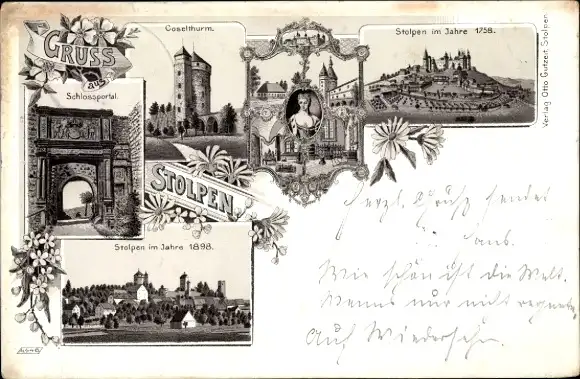 GRUSS
aus
STOLPEN.
Coselthurm.
Stolpen im Jahre 1758.
Schlossportal.
Stolpen im Jahre 1898.
Verlag Otto Gutzeit, Stolpen
Herzl. Grüße sendet
Wie schön ist die Welt.
Wenns nur nicht regnete,
Auf Wiedersehn.